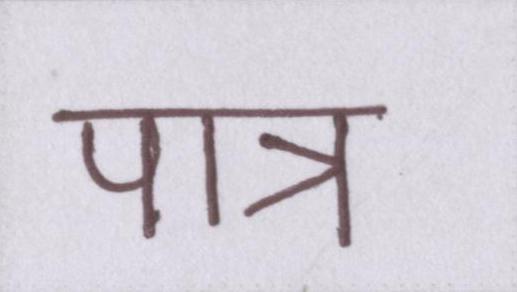 पात्र